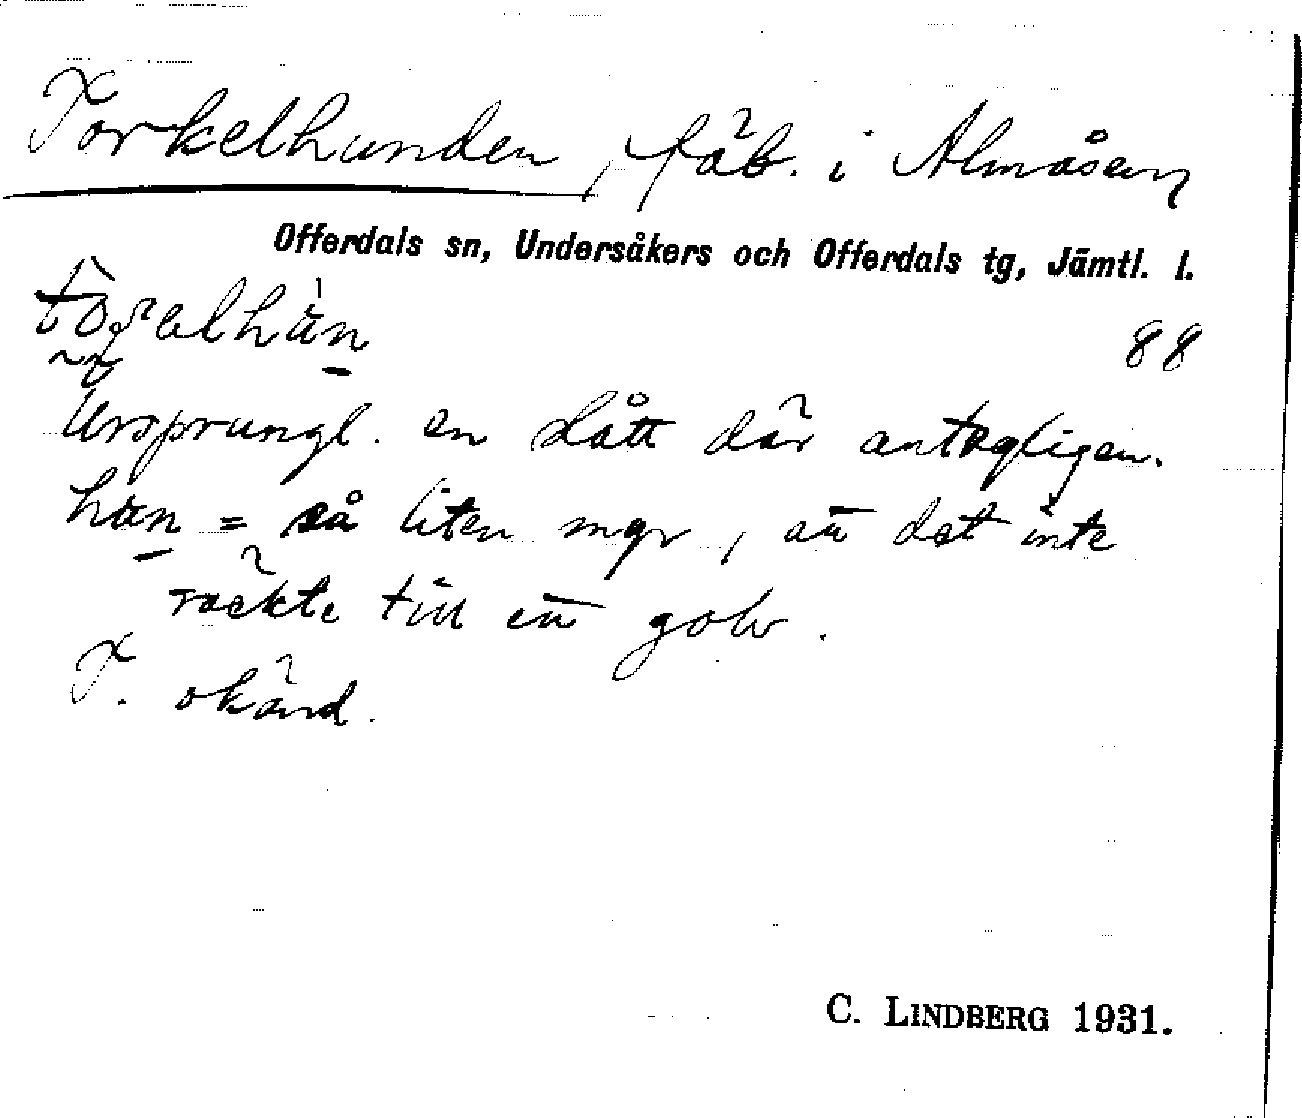 Torkelhunden, fäb. i Almåsen
Offerdals sn, Undersåkers och Offerdals tg, Jämtl. l.
88
Ursprungl. en slått där antagligen.
hun = så liten mgr, att det inte
räckte till ett golv.
T. okänd.
C. LINDBERG 1931.